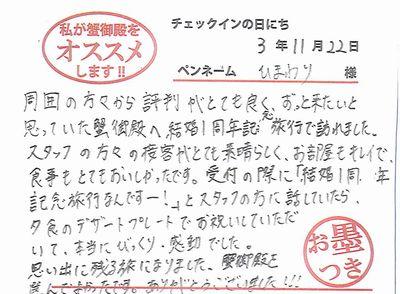 私が蟹御殿を
オススメ
します!!
チェックインの日にち
3年11月22日
ペンネーム ひまわり 様
周囲の方々から評判がとても良く、ずっと来たいと
思っていた蟹御殿へ結婚1周年記念旅行で訪れました。
スタッフの方々の接客がとても素晴らしく、お部屋もキレイで、
食事もとてもおいしかったです。受付の際に「結婚1周年
記念旅行なんですー!」とスタッフの方に話していたら、
夕食のデザートプレートでお祝いしていただ
いて、本当にびっくり・感動でした。
思い出に残る旅になりました。蟹御殿を
選んでよかったです。ありがとうございました!!!
お墨
つき